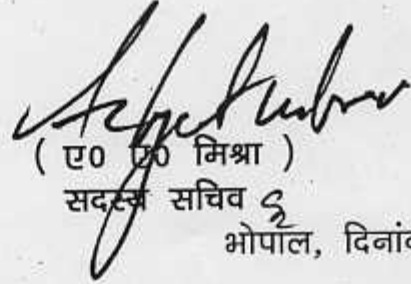 ( ए0 ए0 मिश्रा )
सदस्य सचिव
भोपाल, दिनांक